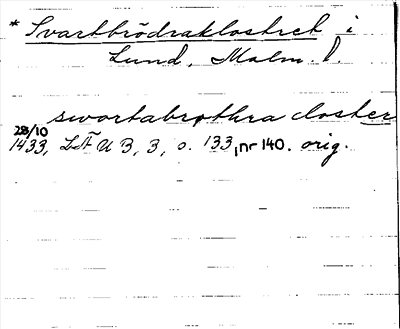 * Svartbrödraklostret i
Lund, Malm. l.
swartabrothra closter
28/10
1433, LÄU B, 3, s. 133, nr 140. orig.